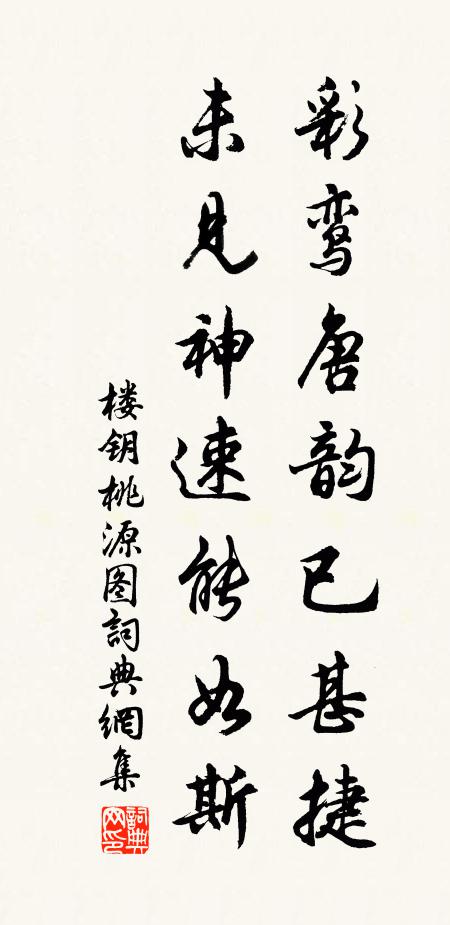 彩鸾唐韵已甚捷
未见神速能如斯
楼钥桃源图詞典網集
詞典
网印